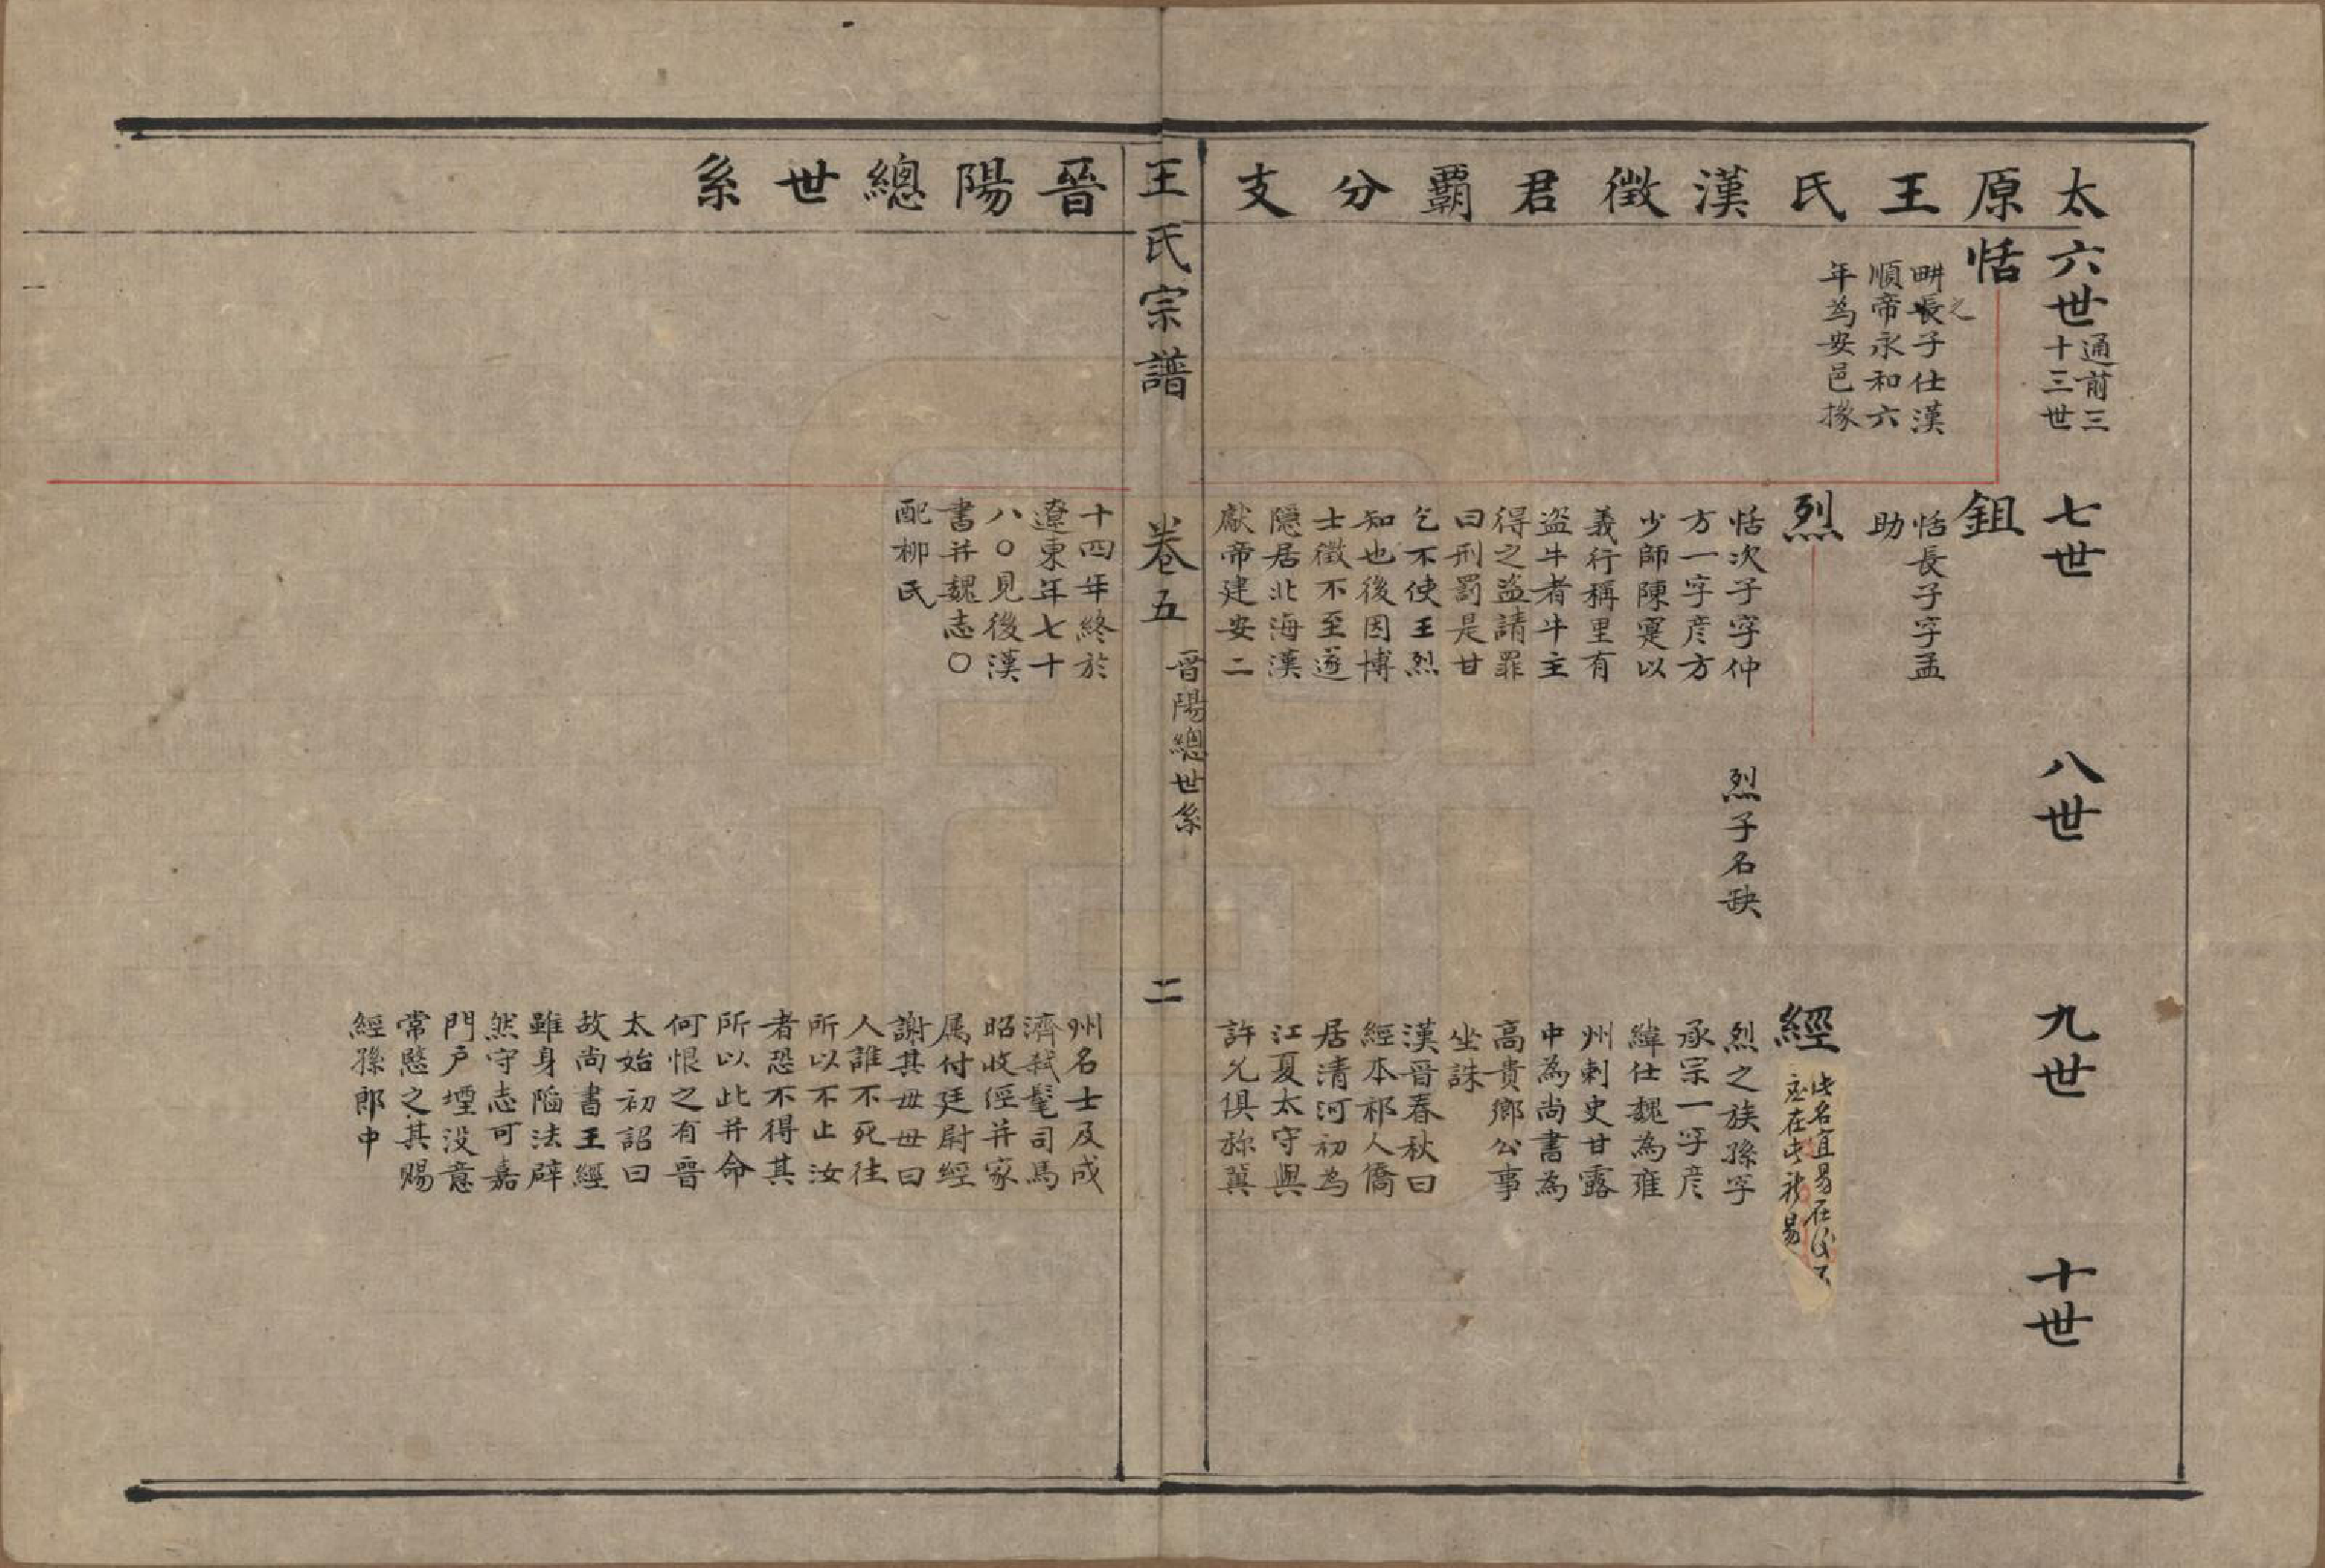 太原王氏漢徵君霸分支
晉陽總世系
六世
通前三
十三世
恬
畊之長子仕漢
順帝永和六
年為安邑掾
七世
鉏
恬長子字孟
助
烈
恬次子字仲
方一字彦方
少師陳寔以
義行稱里有
盜牛者牛主
得之盜請罪
曰刑罰是甘
乞不使王烈
知也後因博
士徵不至遂
隱居北海漢
獻帝建安二
十四年終於
遼東年七十
八〇見後漢
書并魏志〇
配柳氏
八世
烈子名缺
九世
經
此名宜易在後
在此
易
烈之族孫字
承宗一字彦
緯仕魏為雍
州刺史甘露
中為尚書為
高貴鄉公事
坐誅
漢晉春秋曰
經本祁人僑
居清河初為
江夏太守與
許允俱称冀
州名士及成
濟弒髦司馬
昭收經并家
属付廷尉經
謝其母母曰
人誰不死往
所以不止汝
者恐不得其
所以此并命
何恨之有晉
太始初詔曰
故尚書王經
雖身陷法辟
然守志可嘉
門户堙没意
常愍之其賜
經孫郎中
十世
王氏宗譜
卷五
晉陽總世系
二